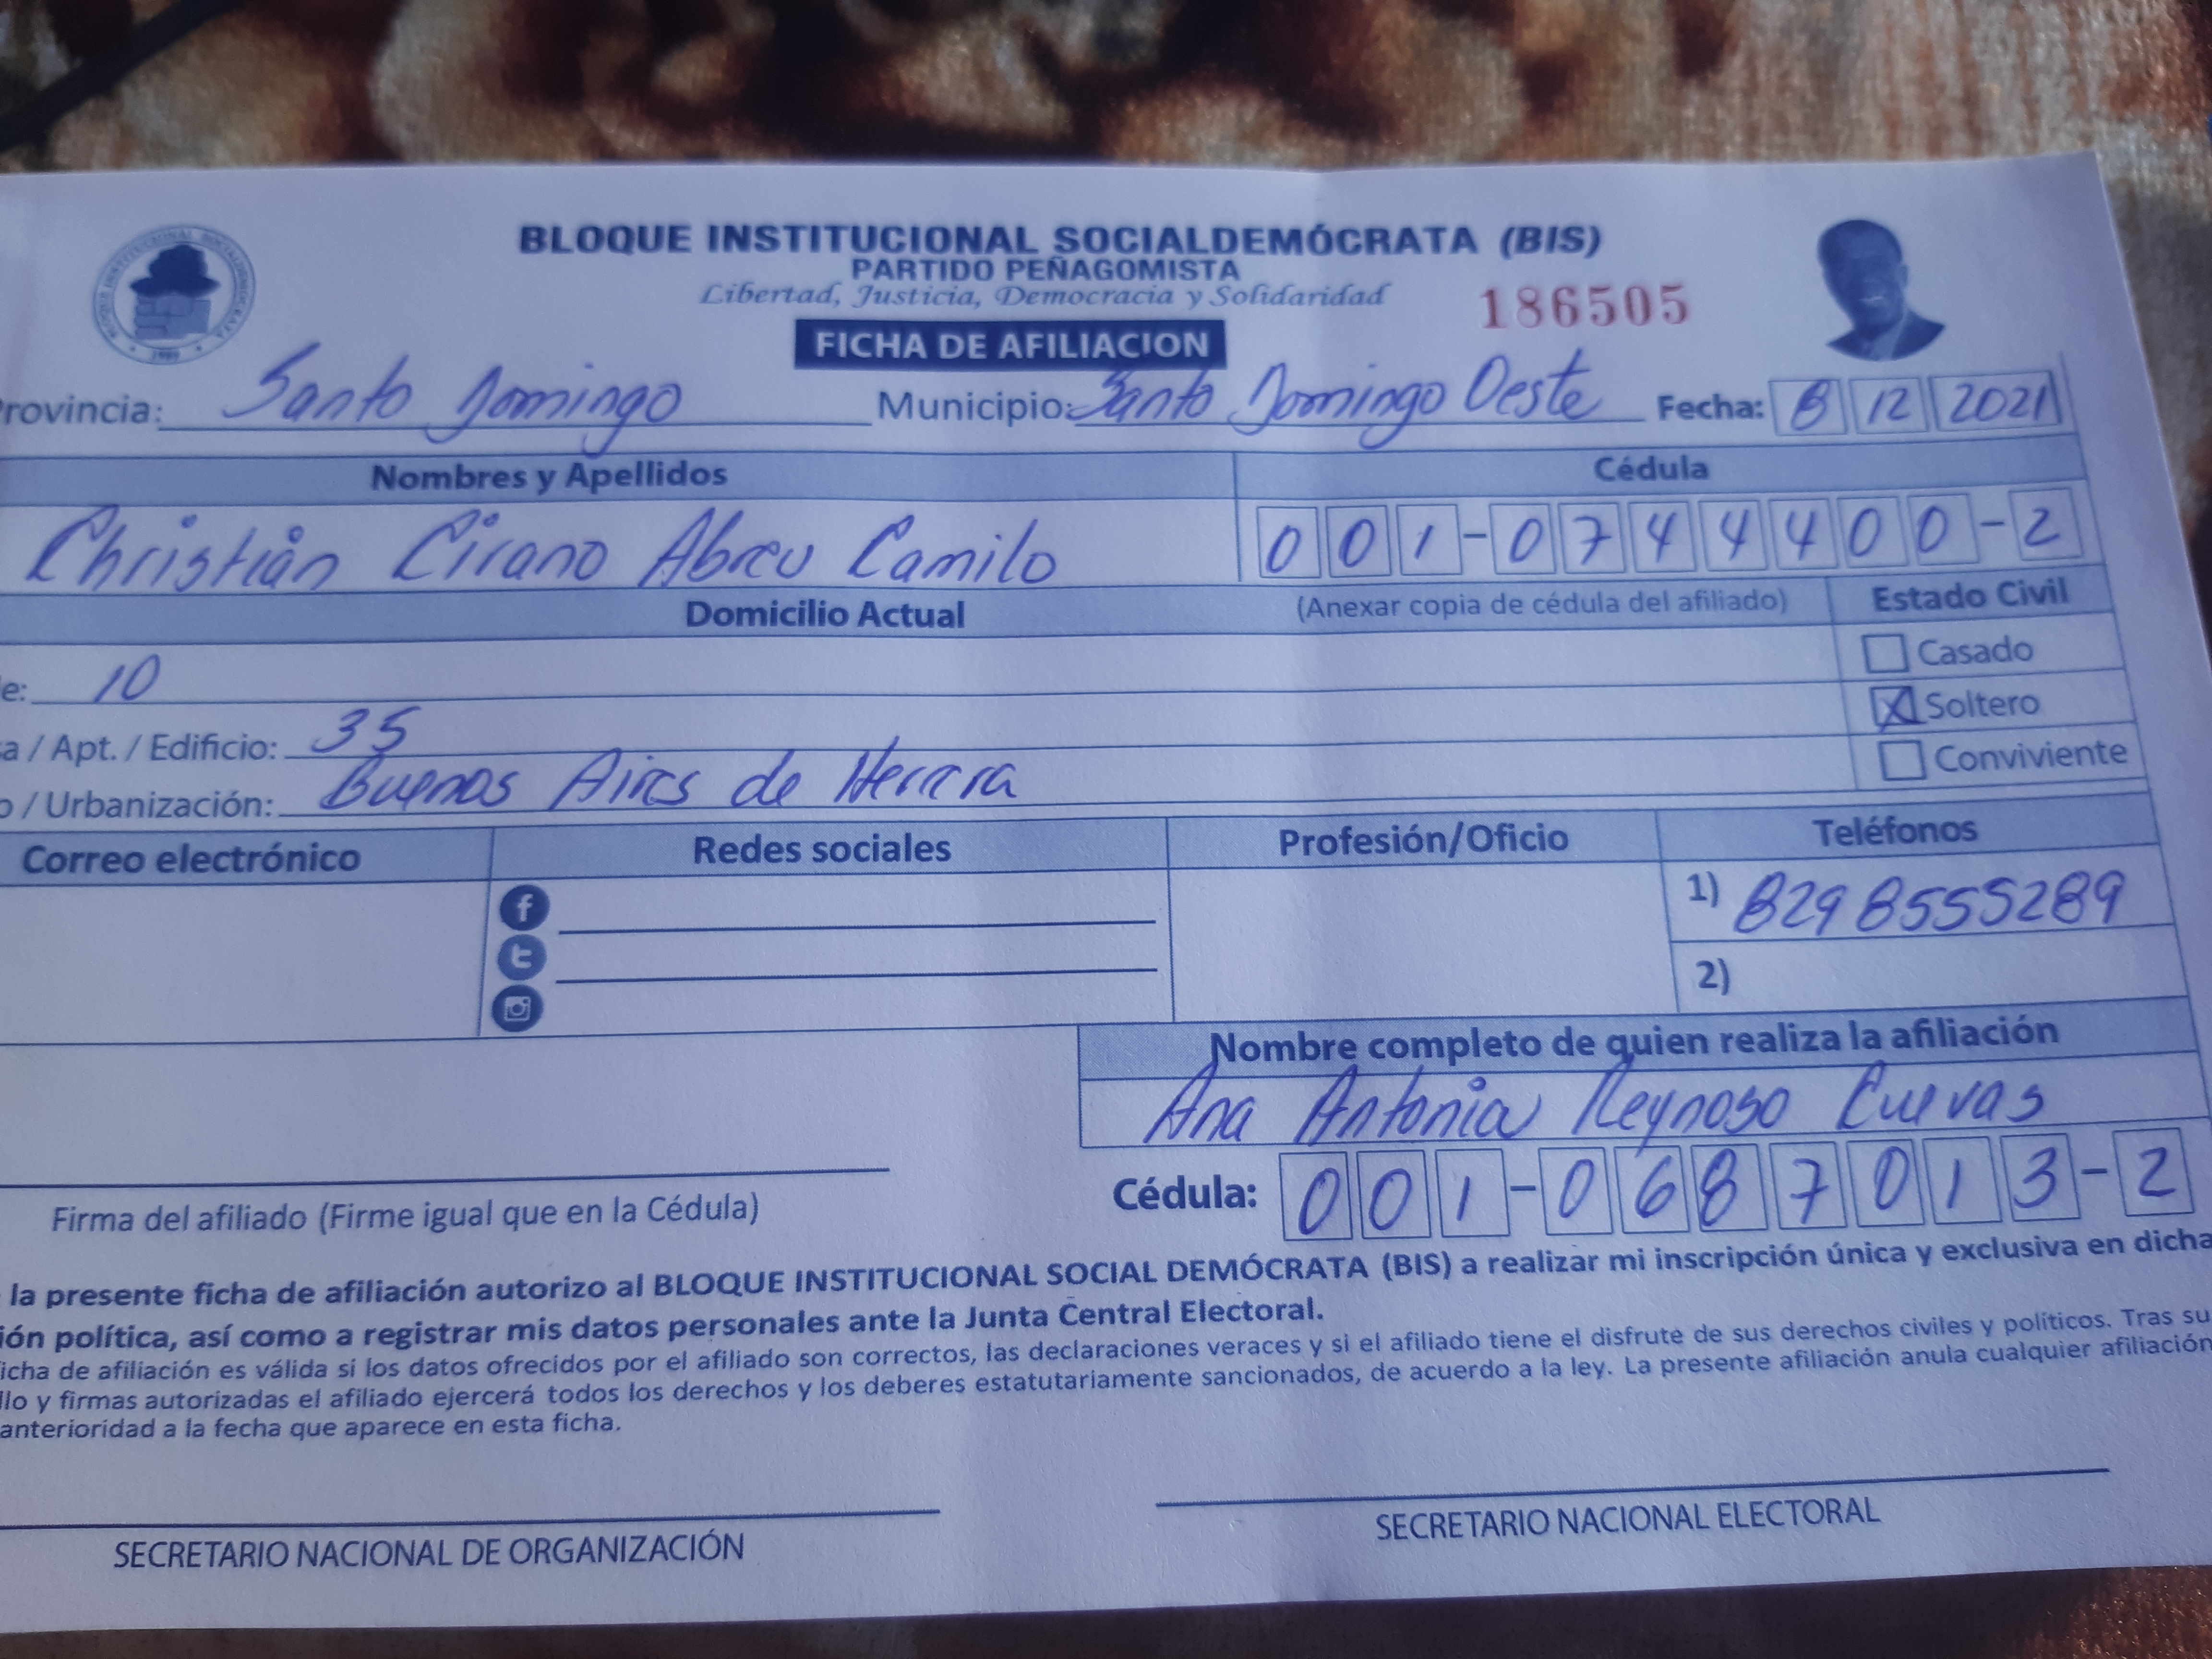 BLOQUE INSTITUCIONAL SOCIALDEMÓCRATA (BIS)
PARTIDO PEÑAGOMISTA
Libertad, Justicia, Democracia y Solidaridad
186505
FICHA DE AFILIACION
rovincia: Santo Domingo Municipio: Santo Domingo Oeste Fecha: 8 12 2021
Nombres y Apellidos Cédula
Christián Cirano Abreu Camilo 001-0744400-2
Domicilio Actual (Anexar copia de cédula del afiliado) Estado Civil
e: 10 Casado
a / Apt. / Edificio: 35 X Soltero
o / Urbanización: Buenos Aires de Herrera Conviviente
Correo electrónico Redes sociales Profesión/Oficio Teléfonos
1) 829 8555289
2)
Nombre completo de quien realiza la afiliación
Ana Antonia Reynoso Cuevas
Cédula: 001-0687013-2
Firma del afiliado (Firme igual que en la Cédula)
la presente ficha de afiliación autorizo al BLOQUE INSTITUCIONAL SOCIAL DEMÓCRATA (BIS) a realizar mi inscripción única y exclusiva en dicha
ión política, así como a registrar mis datos personales ante la Junta Central Electoral.
icha de afiliación es válida si los datos ofrecidos por el afiliado son correctos, las declaraciones veraces y si el afiliado tiene el disfrute de sus derechos civiles y políticos. Tras su
llo y firmas autorizadas el afiliado ejercerá todos los derechos y los deberes estatutariamente sancionados, de acuerdo a la ley. La presente afiliación anula cualquier afiliación
anterioridad a la fecha que aparece en esta ficha.
SECRETARIO NACIONAL DE ORGANIZACIÓN SECRETARIO NACIONAL ELECTORAL